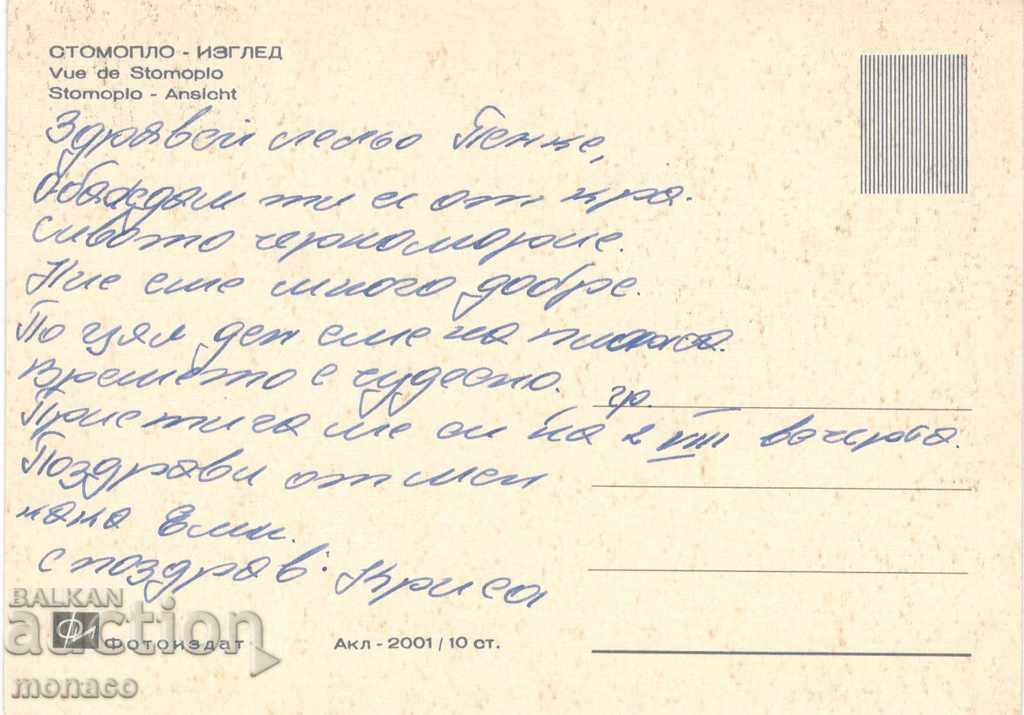 СТОМОПЛО - ИЗГЛЕД
Vue de Stomoplo
Stomoplo - Ansicht
Здравей лельо Пенке,
Обаждам ти се от кра.
сивото черноморие.
Ние сме много добре.
По цял ден сме на плажа.
Времето е чудесно.
гр.
Пристигаме си на 2 VIII вечерта.
Поздрави от мен
кака Еми.
с поздрав: Криса
BALKAN
auction
monaco
Фотоиздат
Акл - 2001 / 10 ст.